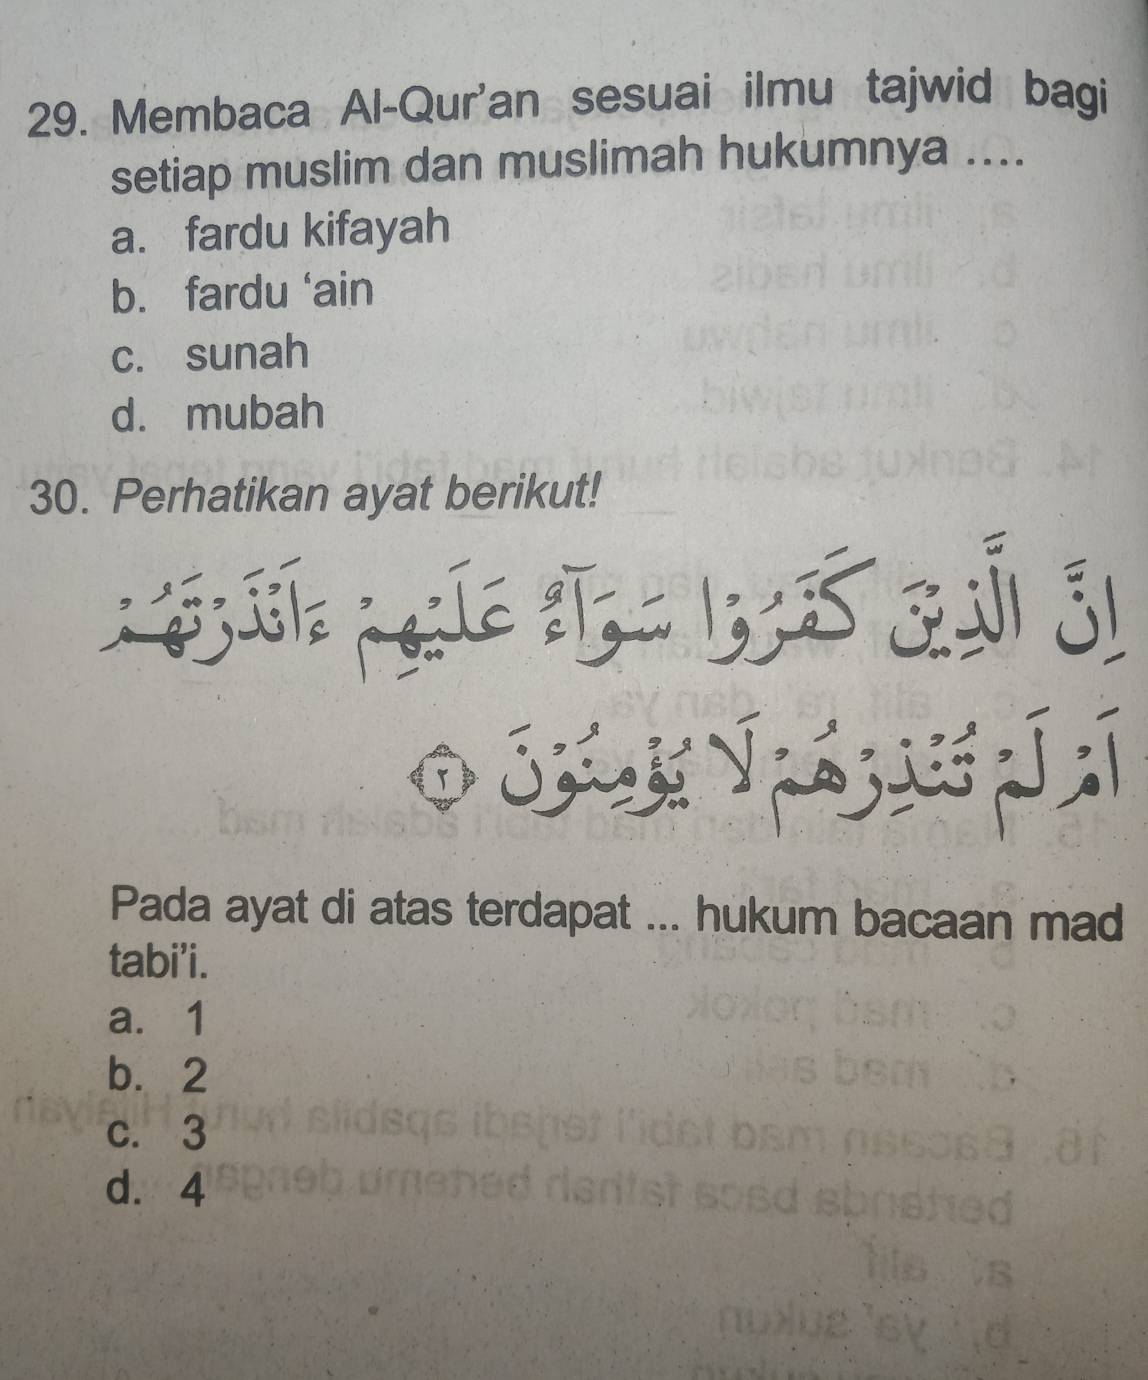 29. Membaca Al-Qur'an sesuai ilmu tajwid bagi
setiap muslim dan muslimah hukumnya ....
a. fardu kifayah
b. fardu 'ain
c. sunah
d. mubah
30. Perhatikan ayat berikut!
اِنَّ الَّذِيْنَ كَفَرُوْا سَوَاۤءٌ عَلَيْهِمْ ءَاَنْذَرْتَهُمْ
اَمْ لَمْ تُنْذِرْهُمْ لَا يُؤْمِنُوْنَ ٢
Pada ayat di atas terdapat ... hukum bacaan mad
tabi'i.
a. 1
b. 2
c. 3
d. 4